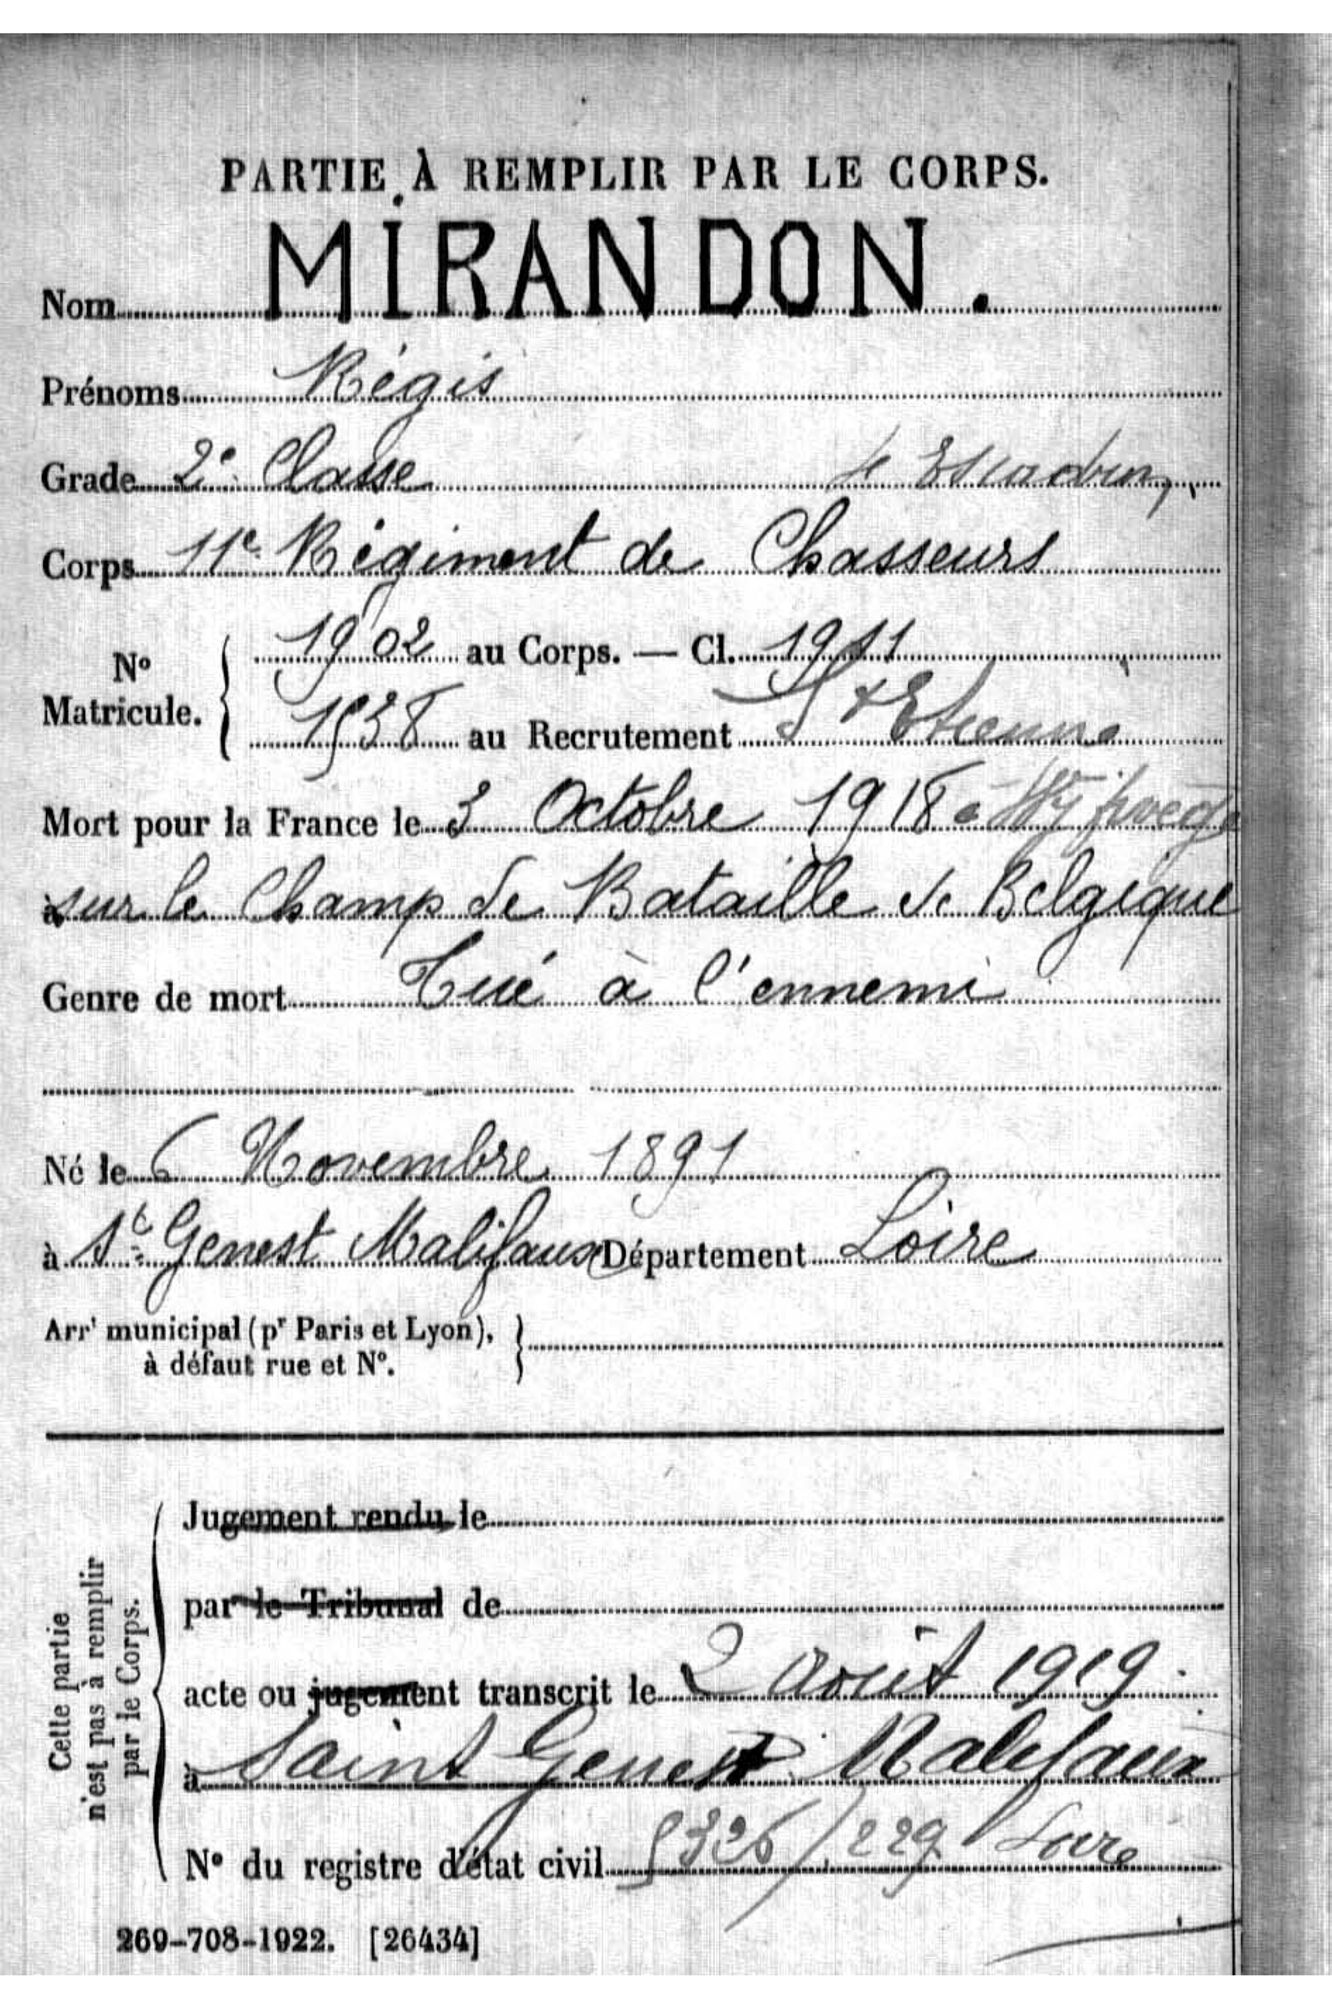 PARTIE À REMPLIR PAR LE CORPS.
Nom MIRANDON.
Prénoms Régis
Grade 2e Classe 4e Escadron,
Corps 11e Régiment de Chasseurs
N° Matricule. { 1902 au Corps. — Cl. 1911
1538 au Recrutement St Etienne
Mort pour la France le 3 Octobre 1918 à
à sur le Champ de Bataille de Belgique
Genre de mort Tué à l'ennemi
Né le 6 Novembre 1891
à St Genest Malifaux Département Loire
Arrt municipal (pr Paris et Lyon), }
à défaut rue et N°.
Cette partie
n'est pas à remplir
par le Corps.
Jugement rendu le
par le Tribunal de
acte ou jugement transcrit le 2 août 1919.
à Saint Genest Malifaux
N° du registre d'état civil 326/229 Loire
269-708-1922. [26434]